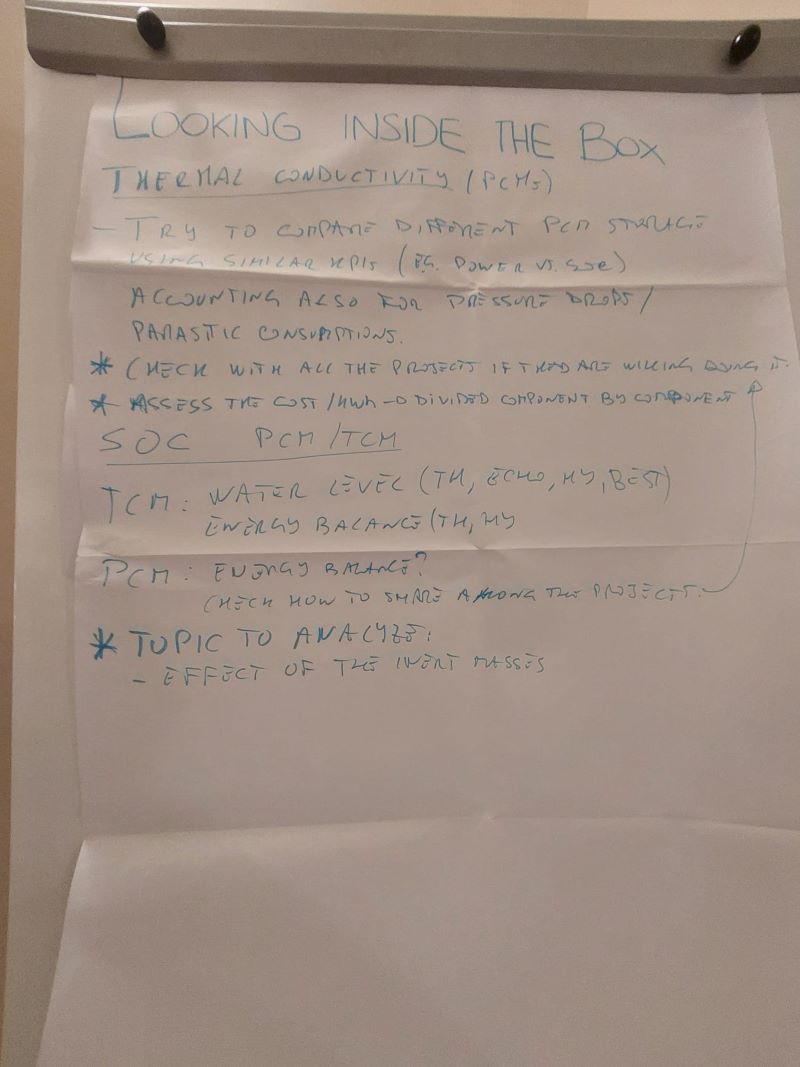 LOOKING INSIDE THE BOX
THERMAL CONDUCTIVITY (PCMs)
- TRY TO COMPARE DIFFERENT PCM STORAGE
USING SIMILAR KPIs (EG. POWER VS. SOC)
ACCOUNTING ALSO FOR PRESSURE DROPS/
PARASTIC CONSUMPTIONS.
* CHECK WITH ALL THE PROJECTS IF ARE WILLING DOING IT.
* ASSESS THE COST/KWh → DIVIDED COMPONENT BY COMPONENT
SOC PCM/TCM
TCM: WATER LEVEL (TH, ECHO, HY, BEST)
ENERGY BALANCE (TH, HY
PCM: ENERGY BALANCE?
CHECK HOW TO SHARE AMONG THE PROJECTS.
* TOPIC TO ANALYZE:
- EFFECT OF THE INERT MASSES